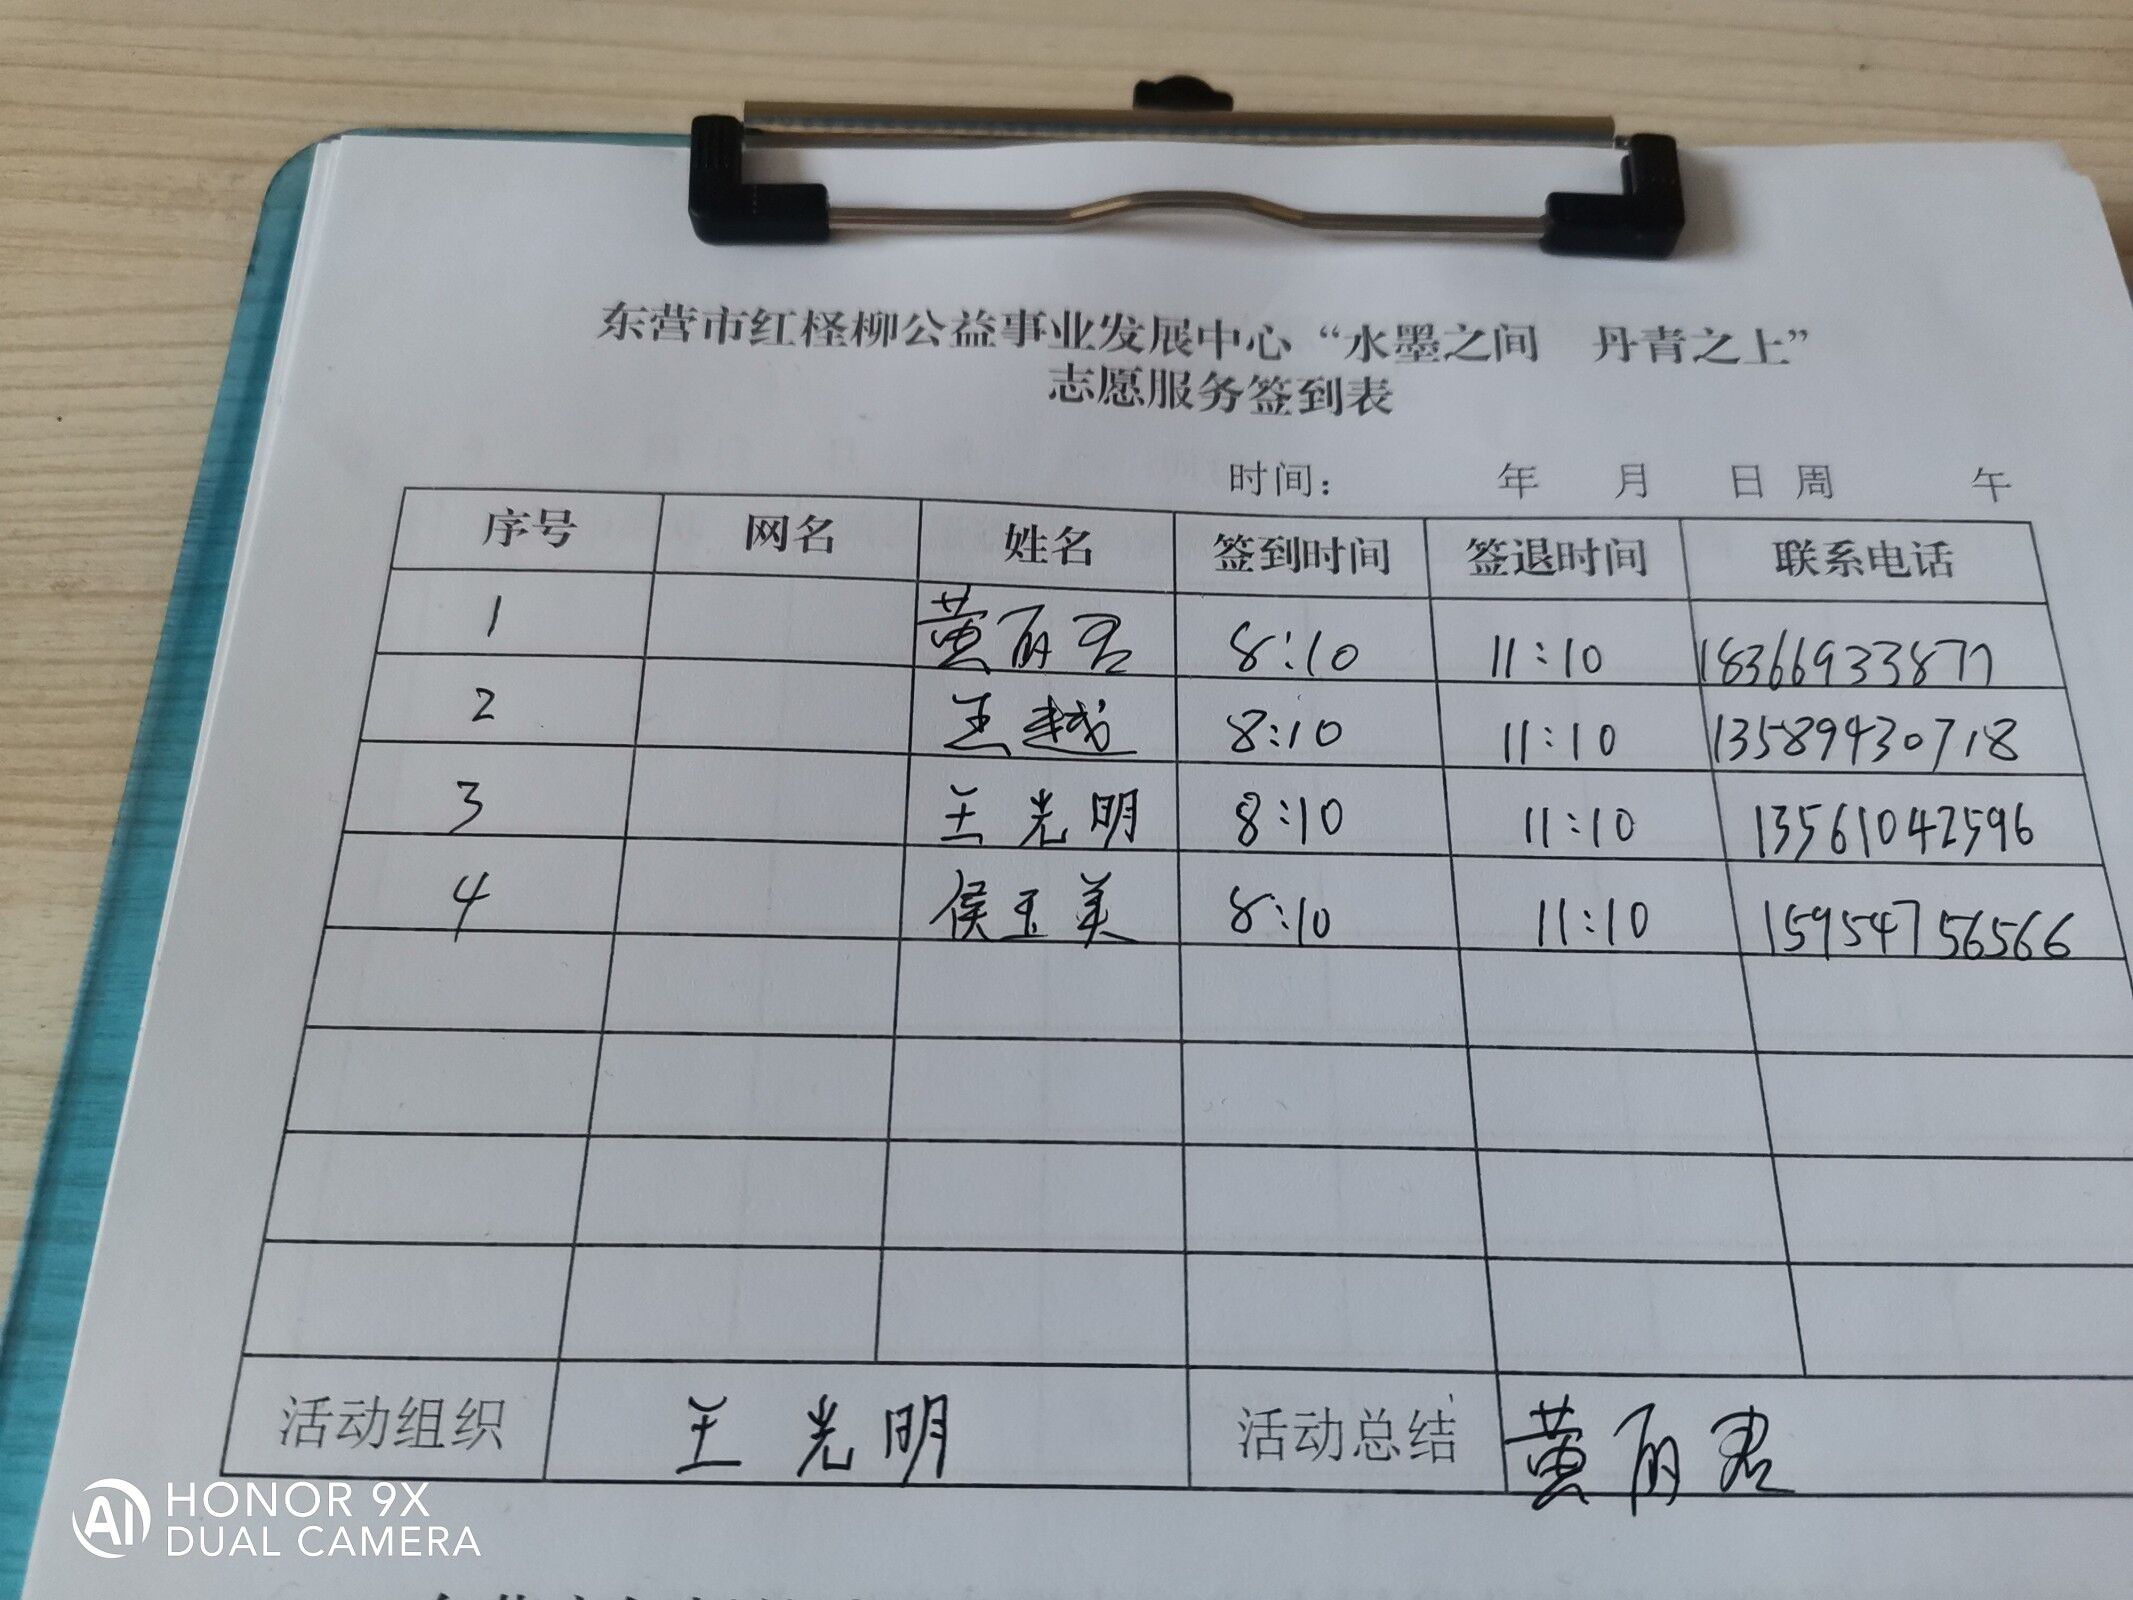 东营市红柽柳公益事业发展中心“水墨之间 丹青之上”
志愿服务签到表
时间： 年 月 日 周 午
序号 网名 姓名 签到时间 签退时间 联系电话
1 黄丽君 8:10 11:10 18366933877
2 王越 8:10 11:10 13589430718
3 王光明 8:10 11:10 13561042596
4 侯玉美 8:10 11:10 15954756566
活动组织 王光明 活动总结 黄丽君
HONOR 9X
DUAL CAMERA